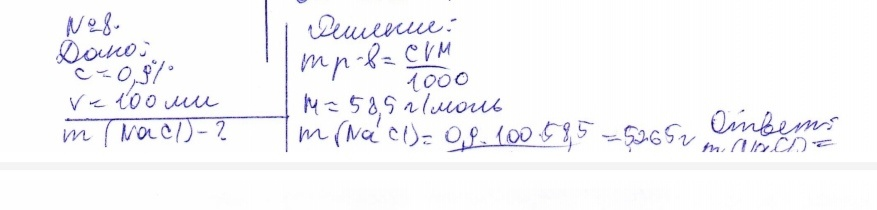 №8.
Дано:
c = 0,9%
v = 100 мл
m (NaCl) - ?
Решение:
m р-в = CVM
1000
M = 58,5 г/моль
m (NaCl) = 0,9 · 100 · 58,5 = 5,265 г
Ответ:
m (NaCl) =